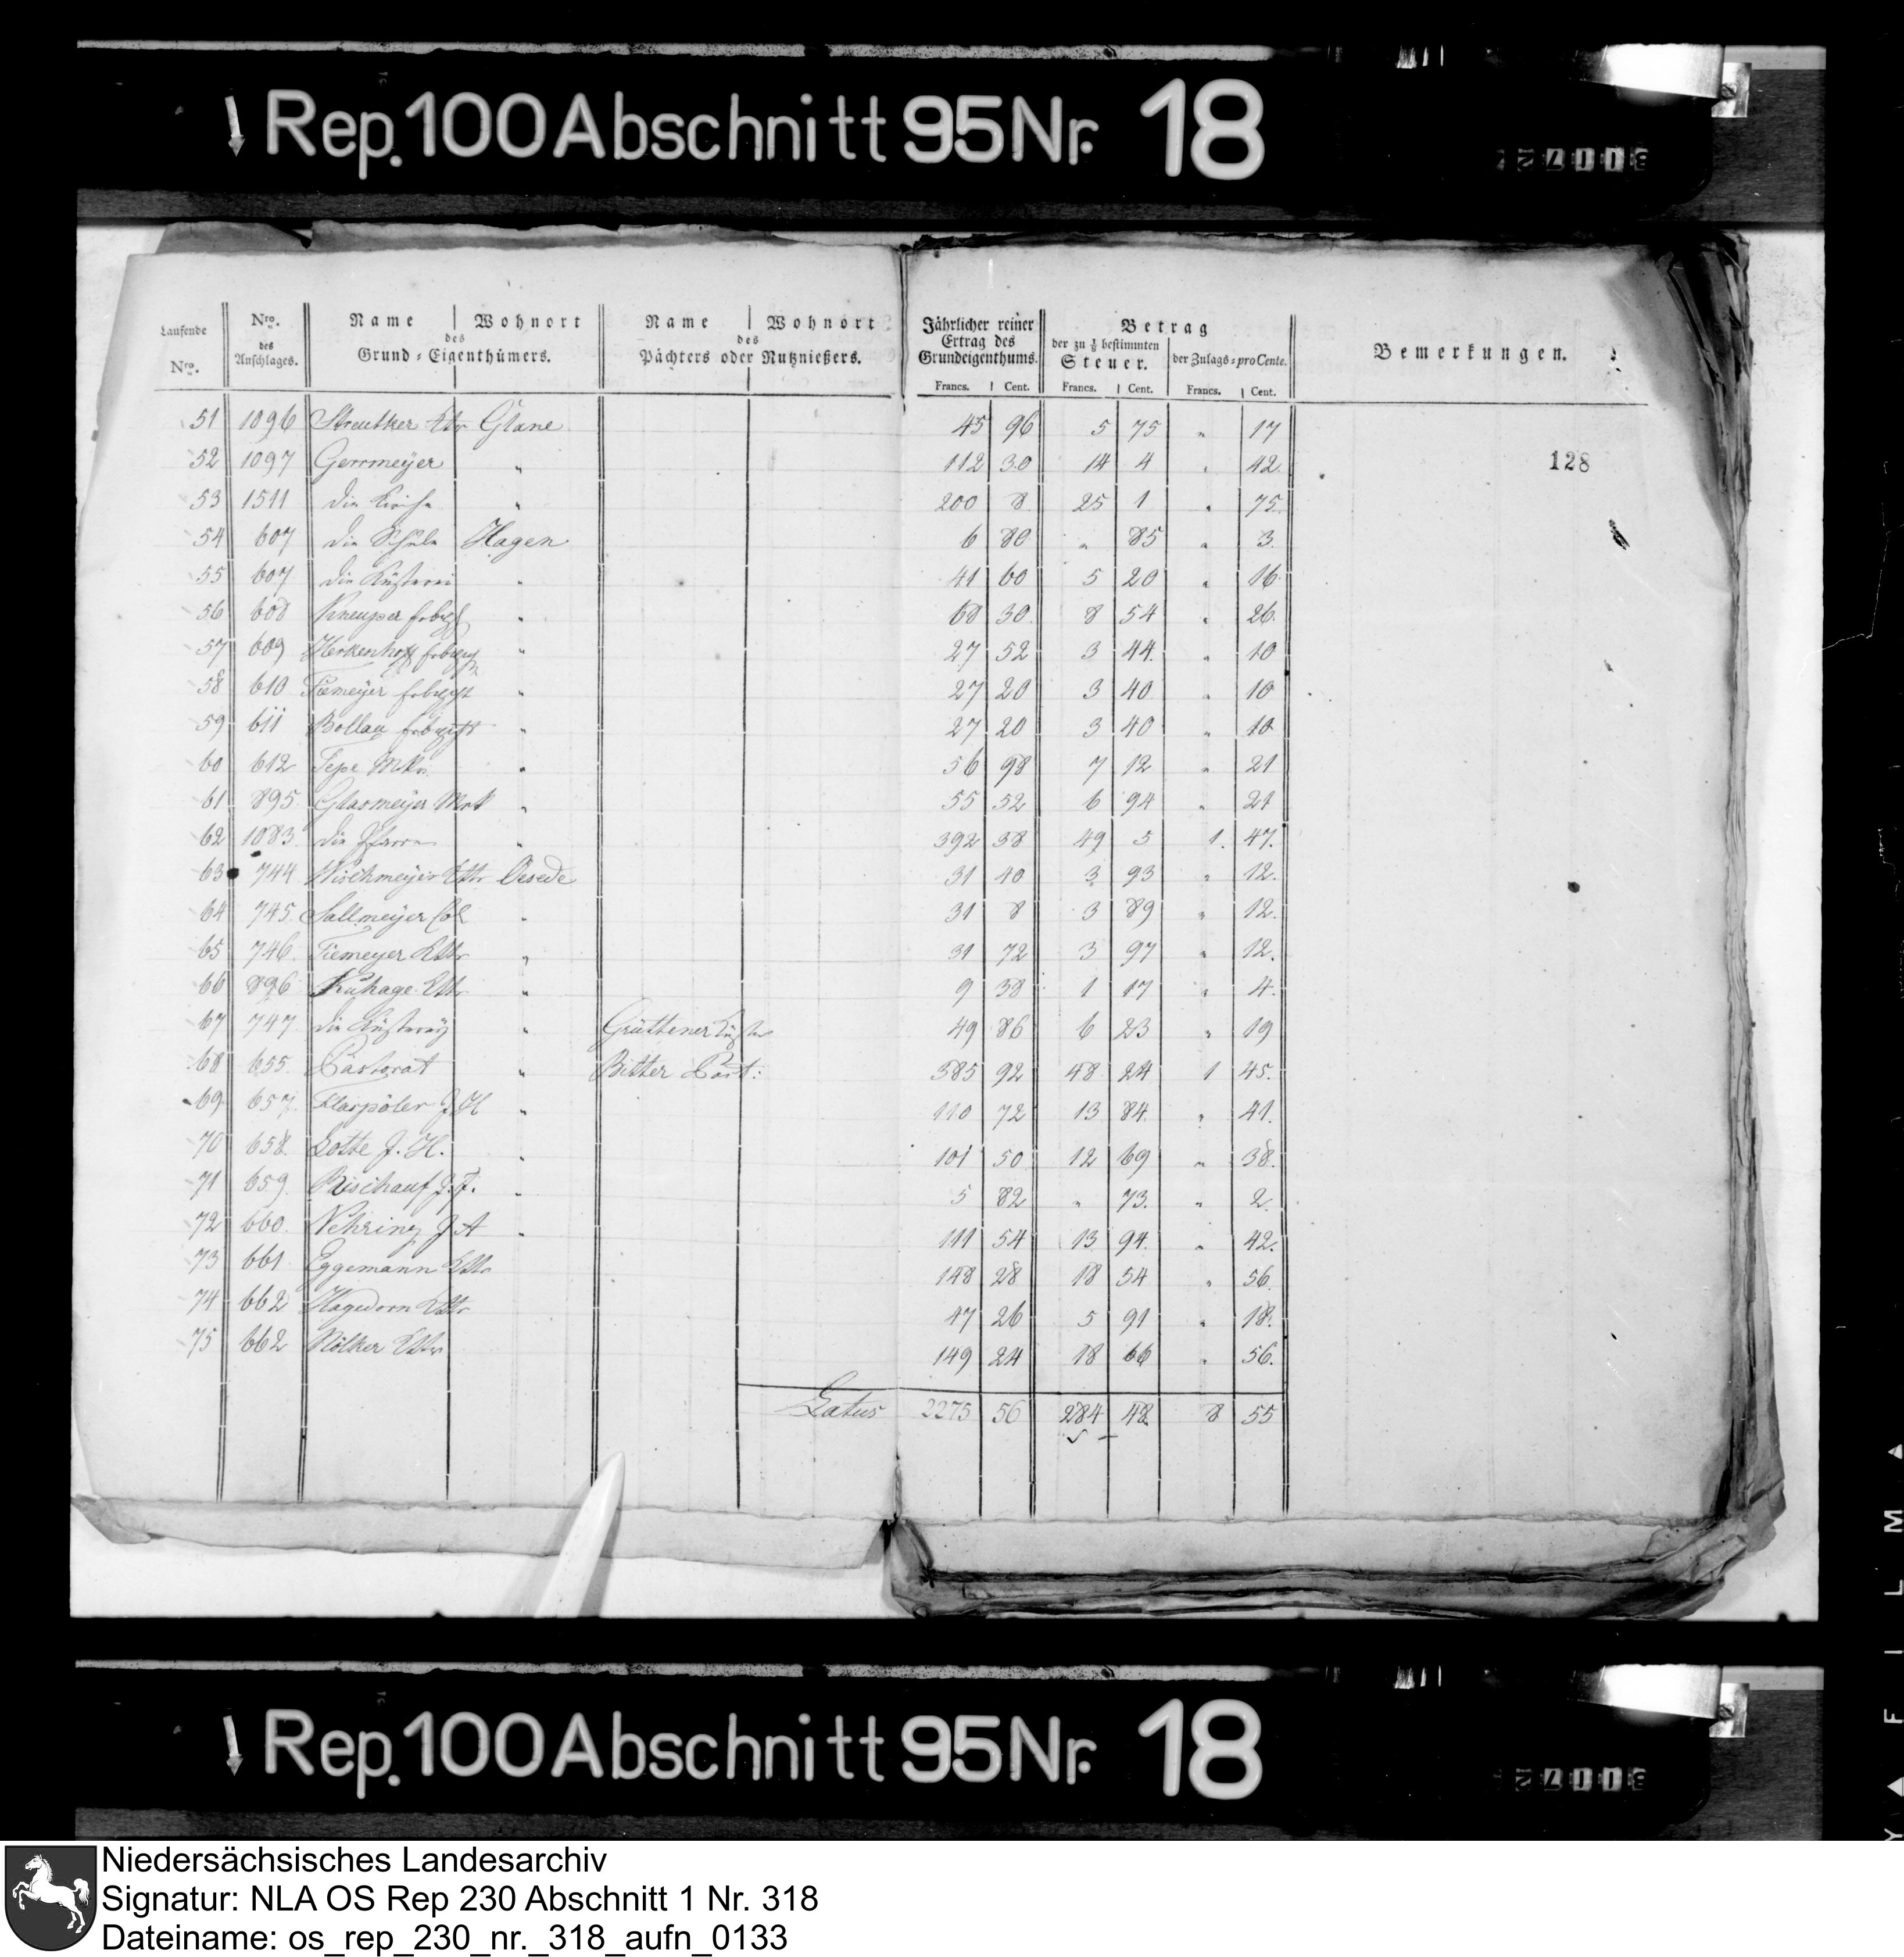 Rep. 100 Abschnitt 95 Nr. 18
Laufende Nro. Nro. des Anschlages. Name Wohnort des Grund-Eigenthümers. Name Wohnort des Pächters oder Nutznießers. Jährlicher reiner Ertrag des Grundeigenthums. Francs. Cent. Betrag der zu 1/8 bestimmten Steuer. Francs. Cent. der Zulags-pro Cente. Francs. Cent. Bemerkungen.
51 1096 Streutker Glane 45 96 5 75 " 17
52 1097 Gerrmeyer " 112 30 14 4 " 42
128
53 1511 die Kirche " 200 8 25 1 " 75
54 607 die Schule Hagen 6 80 " 85 " 3
55 607 die Küsterei " 41 60 5 20 " 16
56 608 Kneuper " 68 30 8 54 " 26
57 609 Herkenhoff " 27 52 3 44 " 10
58 610 Tiemeyer " 27 20 3 40 " 10
59 611 Bollau " 27 20 3 40 " 10
60 612 Tepe Mk " 56 98 7 12 " 21
61 895 Glasmeyer Mrk " 55 52 6 94 " 21
62 1083 die Pfarre " 392 38 49 5 1 47
63 744 Wischmeyer Oesede 31 40 3 93 " 12
64 745 Sallmeyer Col " 31 8 3 89 " 12
65 746 Tiemeyer " 31 72 3 97 " 12
66 896 Kuhage " 9 38 1 17 " 4
67 747 die Küsterey " Grüttener Küster 49 86 6 23 " 19
68 655 Pastorat " Bitter Past: 385 92 48 24 1 45
69 657 Flaspöler J H " 110 72 13 84 " 41
70 658 Lotte J. H. " 101 50 12 69 " 38
71 659 Bischauf J. F. " 5 82 " 73 " 2
72 660 Nehring J A " 111 54 13 94 " 42
73 661 Eggemann 148 28 18 54 " 56
74 662 Hagedorn 47 26 5 91 " 18
75 662 Nölker 149 24 18 66 " 56
Latus 2275 56 284 48 8 55
Rep. 100 Abschnitt 95 Nr. 18
Niedersächsisches Landesarchiv
Signatur: NLA OS Rep 230 Abschnitt 1 Nr. 318
Dateiname: os_rep_230_nr._318_aufn_0133